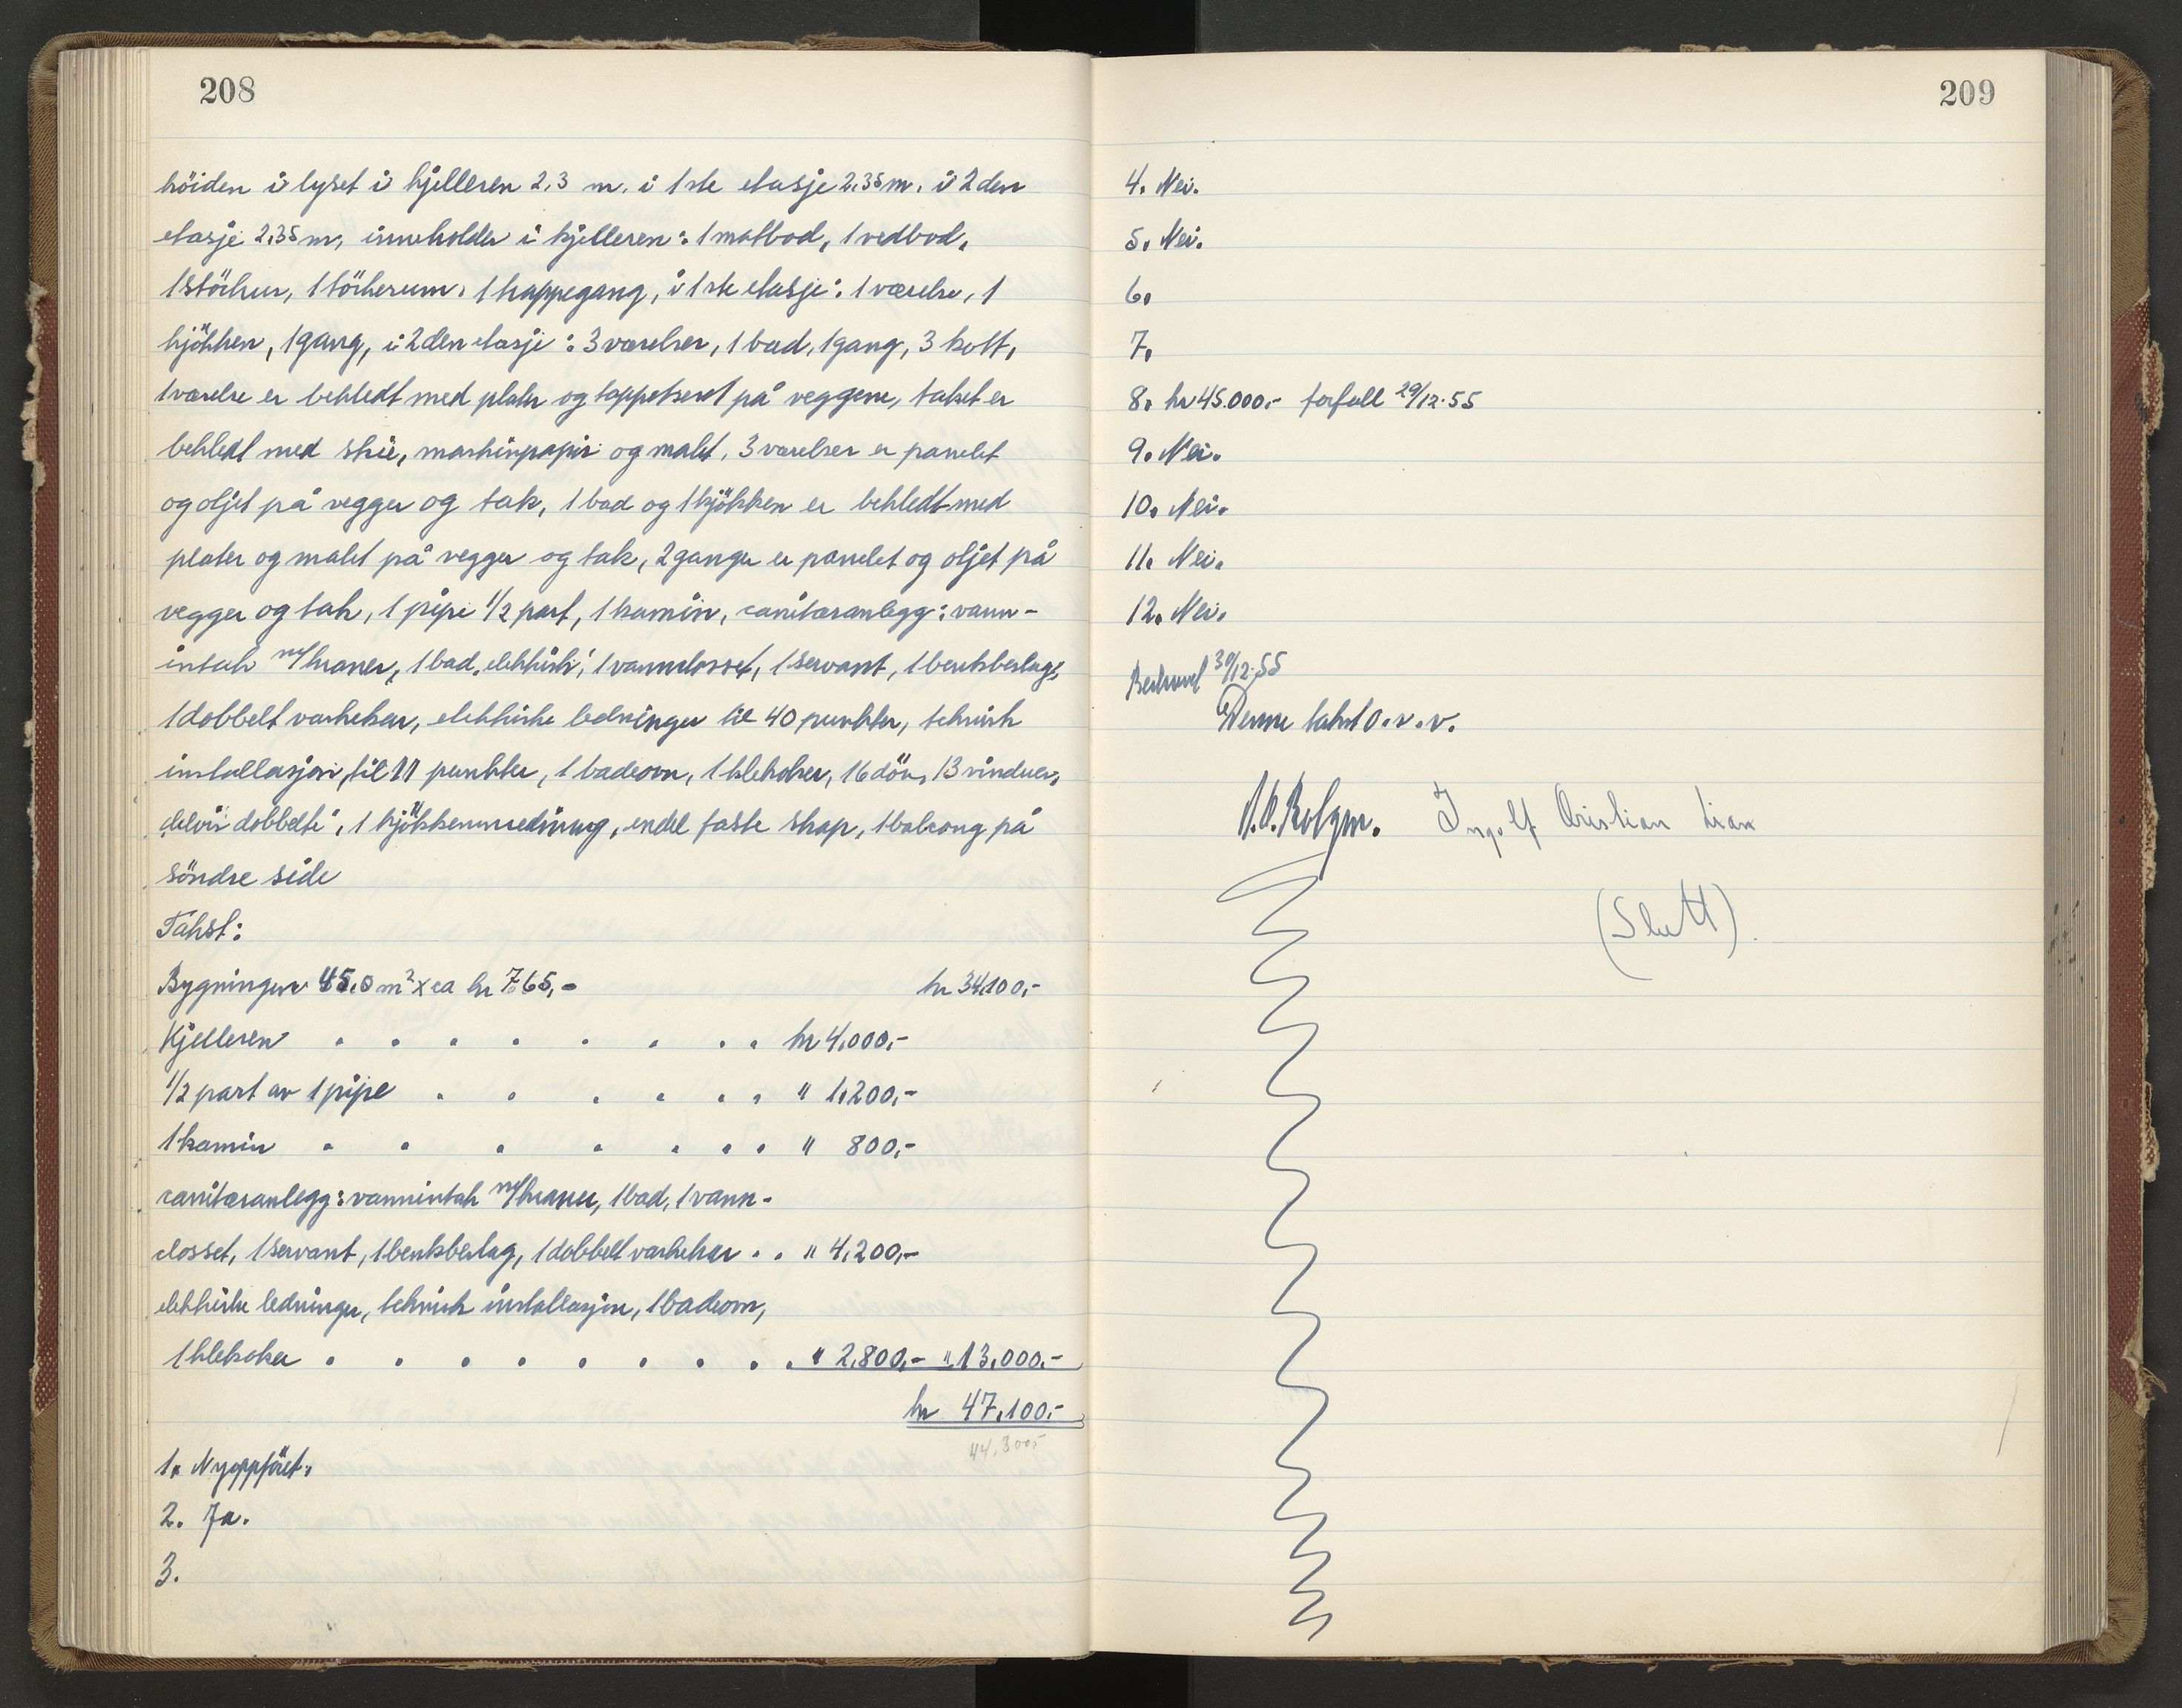 208
höiden i lyset i kjelleren 2,3 m. i 1ste etasje 2.35m. i 2den
etasje 2,35 m, inneholder i kjelleren: 1 matbod, 1 vedbod,
1 störhus, 1 törkerum, 1 trappegang, i 1ste etasje: 1 værelse, 1
kjökken, 1 gang, i 2den etasje: 3 værelser, 1 bad, 1 gang, 3 kott,
1 værelse er bekledt med plater og tappetseret på veggene, taket er
bekledt med skie, maskinpapir og malet, 3 værelser er panelet
og oljet på vegger og tak, 1 bad og 1 kjökken er bekledt med
plater og malet på vegger og tak, 2 ganger er panelet og oljet på
vegger og tak, 1 pipe 1/2 part, 1 kamin, sanitæranlegg: vann-
intak m/kraner, 1 bad, elektrisk, 1 vannclosset, 1 servant, 1 benkbeslag,
1 dobbelt vaskekar, elektriske ledninger til 40 punkter, teknisk
installasjon til 11 punkter, 1 badeovn, 1 elekoker, 16 dör, 13 vinduer,
delvis dobbelte, 1 kjökkeninnredning, endel faste skap, 1 balcong på
söndre side
Takst:
Bygningen 45.0 m² x ca kr 765,- kr 34,100,-
Kjelleren . . . . . . . . kr 4,000,-
1/2 part av 1 pipe . . . . . . " 1,200,-
1 kamin . . . . . . . " 800,-
sanitæranlegg: vannintak m/kraner, 1 bad, 1 vann-
closset, 1 servant, 1 benkbeslag, 1 dobbelt vaskekar . . " 4,200,-
elektriske ledninger, teknisk installasjon, 1 badeovn,
1 elekoker . . . . . . . . . " 2,800,- " 13,000,-
kr 47,100,-
44.300,-
1. Nyoppfört.
2. Ja.
3.
209
4. Nei.
5. Nei.
6.
7.
8. kr 45.000,- forfall 29/12-55
9. Nei.
10. Nei.
11. Nei.
12. Nei.
30/12-55
Denne takst o.v.v.
Ingolf Kristian Lian
(Slutt).